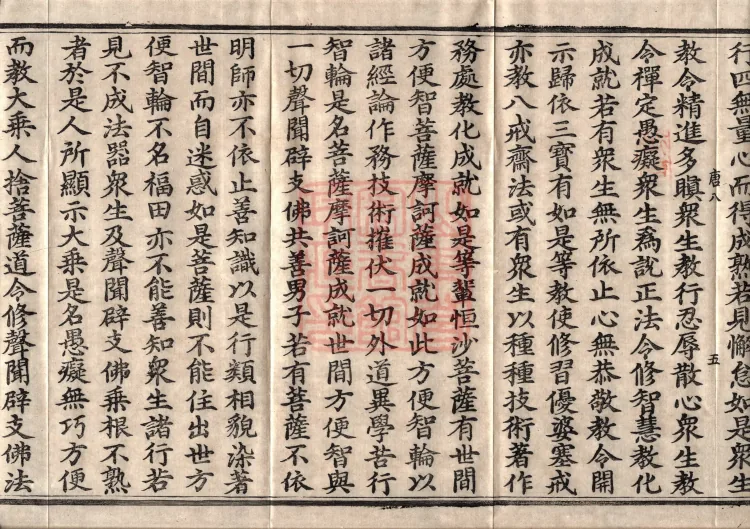 行四無量心而得成熟若見懈怠如是衆生
教令精進多瞋衆生教行忍辱散心衆生教
唐八
五
令禪定愚癡衆生爲說正法令修智慧教化
成就若有衆生無所依止心無恭敬教令開
示歸依三寶有如是等教使修習優婆塞戒
亦教八戒齋法或有衆生以種種技術著作
務處教化成就如是等輩恒沙菩薩有世間
方便智菩薩摩訶薩成就如此方便智輪以
諸經論作務技術摧伏一切外道異學苦行
智輪是名菩薩摩訶薩成就世間方便智與
一切聲聞辟支佛共善男子若有菩薩不依
明師亦不依止善知識以是行類相貌染著
世間而自迷惑如是菩薩則不能住出世方
便智輪不名福田亦不能善知衆生諸行若
見不成法器衆生及聲聞辟支佛乘根不熟
者於是人所顯示大乘是名愚癡無巧方便
而教大乘人捨菩薩道令修聲聞辟支佛法